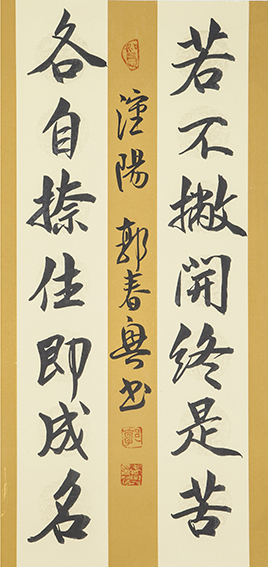 若不撇開終是苦
各自捺住即成名
陽 郭春興书